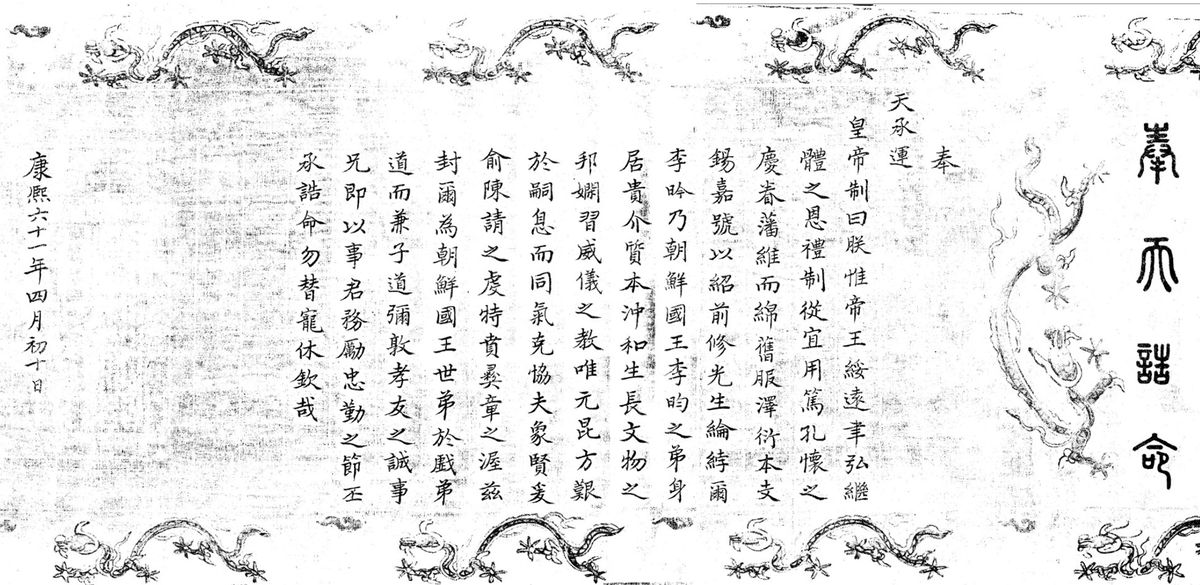 奉天誥命
奉
天承運
皇帝制曰朕惟帝王綏遠聿弘繼
體之恩禮制從宜用篤孔懷之
慶眷藩維而綿舊服澤衍本支
錫嘉號以紹前修光生綸綍爾
李昑乃朝鮮國王李昀之弟身
居貴介質本沖和生長文物之
邦嫻習威儀之教唯元昆方艱
於嗣息而同氣克協夫象賢爰
俞陳請之虔特賁彝章之渥兹
封爾為朝鮮國王世弟於戲弟
道而兼子道彌敦孝友之誠事
兄即以事君務勵忠勤之節丕
承誥命勿替寵休欽哉
康熙六十一年四月初十日